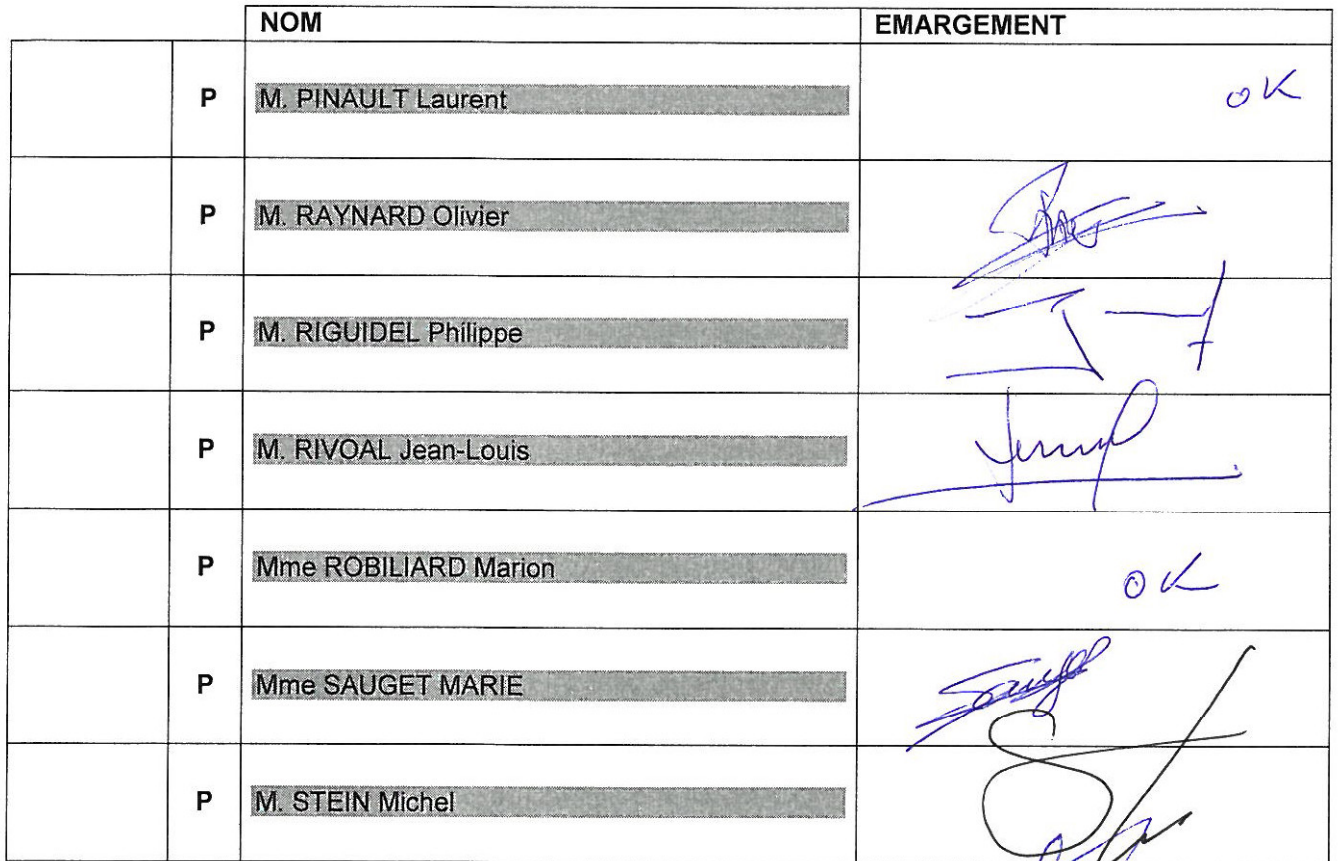 NOM EMARGEMENT
P M. PINAULT Laurent OK
P M. RAYNARD Olivier
P M. RIGUIDEL Philippe
P M. RIVOAL Jean-Louis
P Mme ROBILIARD Marion OK
P Mme SAUGET MARIE
P M. STEIN Michel